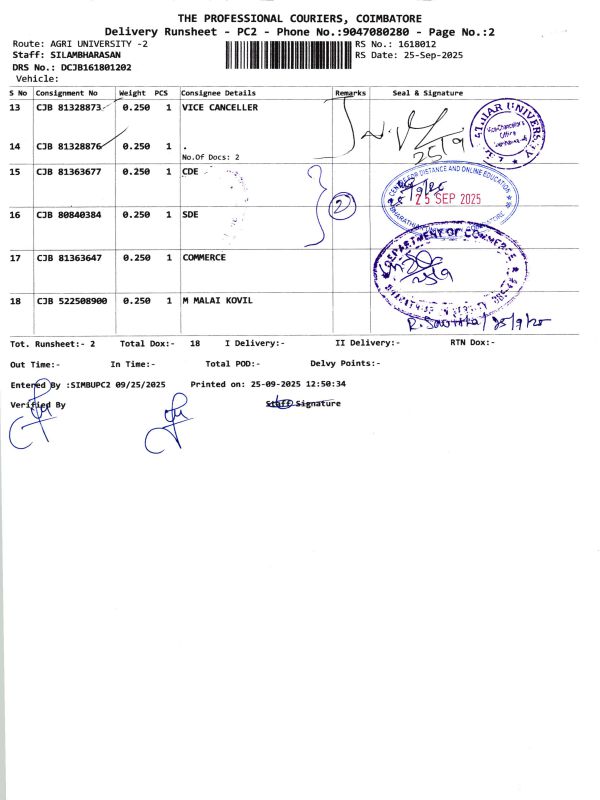 THE PROFESSIONAL COURIERS, COIMBATORE
Delivery Runsheet - PC2 - Phone No.:9047080280 - Page No.:2
Route: AGRI UNIVERSITY -2
RS No.: 1618012
Staff: SILAMBHARASAN
RS Date: 25-Sep-2025
DRS No.: DCJB161801202
Vehicle:
S No Consignment No Weight PCS Consignee Details Remarks Seal & Signature
13 CJB 81328873 0.250 1 VICE CANCELLER
14 CJB 81328876 0.250 1 .
No.Of Docs: 2
25/9
15 CJB 81363677 0.250 1 CDE
CENTRE FOR DISTANCE AND ONLINE EDUCATION
25 SEP 2025
2
16 CJB 80840384 0.250 1 SDE
17 CJB 81363647 0.250 1 COMMERCE
DEPARTMENT OF COMMERCE
25/9
18 CJB 522508900 0.250 1 M MALAI KOVIL
25/9/20
Tot. Runsheet:- 2 Total Dox:- 18 I Delivery:- II Delivery:- RTN Dox:-
Out Time:- In Time:- Total POD:- Delvy Points:-
Entered By :SIMBUPC2 09/25/2025 Printed on: 25-09-2025 12:50:34
Verified By Staff Signature